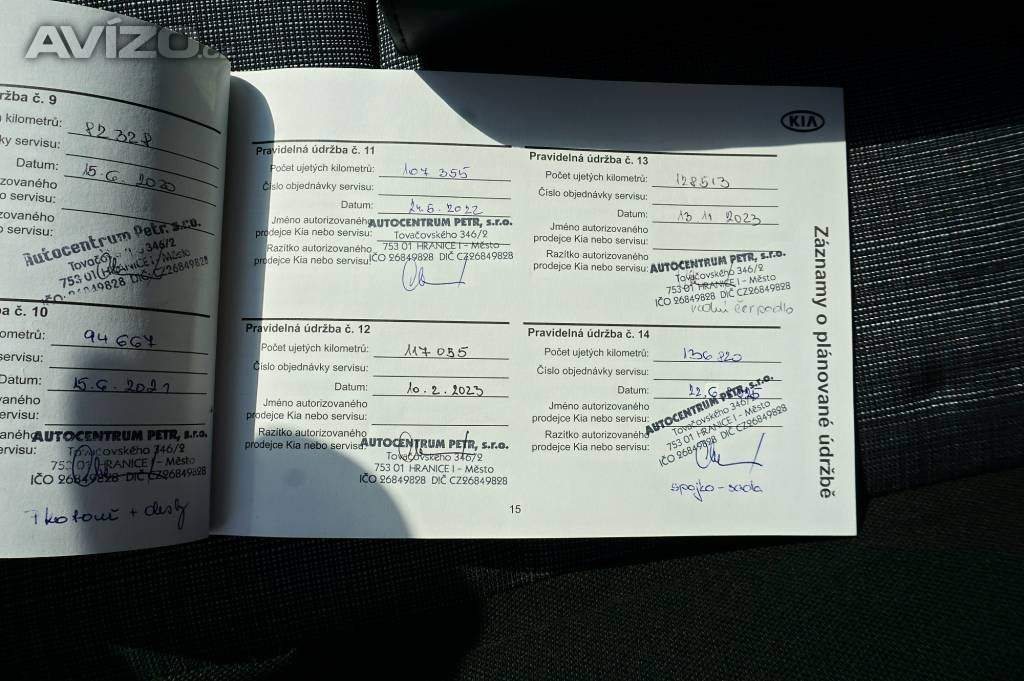 AVÍZO.cz
ržba č. 9
kilometrů: 82328
ky servisu:
Datum: 15.6.2020
rizovaného
o servisu:
rizovaného
servisu:
Autocentrum Petr, s.r.o.
Tovačovského 346/2
753 01 HRANICE I – Město
IČO: 26849828 DIČ CZ26849828
ba č. 10
ometrů: 94 667
servisu:
Datum: 15.6.2021
ovaného
servisu:
vaného
ervisu:
AUTOCENTRUM PETR, s.r.o.
Tovačovského 346/2
753 01 HRANICE I – Město
IČO 26849828 DIČ CZ26849828
+ desky
KIA
Pravidelná údržba č. 11
Počet ujetých kilometrů: 107 355
Číslo objednávky servisu:
Datum: 24.6.2022
Jméno autorizovaného
prodejce Kia nebo servisu:
Razítko autorizovaného
prodejce Kia nebo servisu:
AUTOCENTRUM PETR, s.r.o.
Tovačovského 346/2
753 01 HRANICE I – Město
IČO 26849828 DIČ CZ26849828
Pravidelná údržba č. 12
Počet ujetých kilometrů: 117 055
Číslo objednávky servisu:
Datum: 10.2.2023
Jméno autorizovaného
prodejce Kia nebo servisu:
Razítko autorizovaného
prodejce Kia nebo servisu:
AUTOCENTRUM PETR, s.r.o.
Tovačovského 346/2
753 01 HRANICE I – Město
IČO 26849828 DIČ CZ26849828
Pravidelná údržba č. 13
Počet ujetých kilometrů: 128513
Číslo objednávky servisu:
Datum: 13 11 2023
Jméno autorizovaného
prodejce Kia nebo servisu:
Razítko autorizovaného
prodejce Kia nebo servisu:
AUTOCENTRUM PETR, s.r.o.
Tovačovského 346/2
753 01 HRANICE I – Město
IČO 26849828 DIČ CZ26849828
vodní čerpadlo
Pravidelná údržba č. 14
Počet ujetých kilometrů: 136820
Číslo objednávky servisu:
Datum: 22.6
Jméno autorizovaného
prodejce Kia nebo servisu:
Razítko autorizovaného
prodejce Kia nebo servisu:
AUTOCENTRUM PETR, s.r.o.
Tovačovského 346/2
753 01 HRANICE I – Město
IČO 26849828 DIČ CZ26849828
spojko-sada
Záznamy o plánované údržbě
15